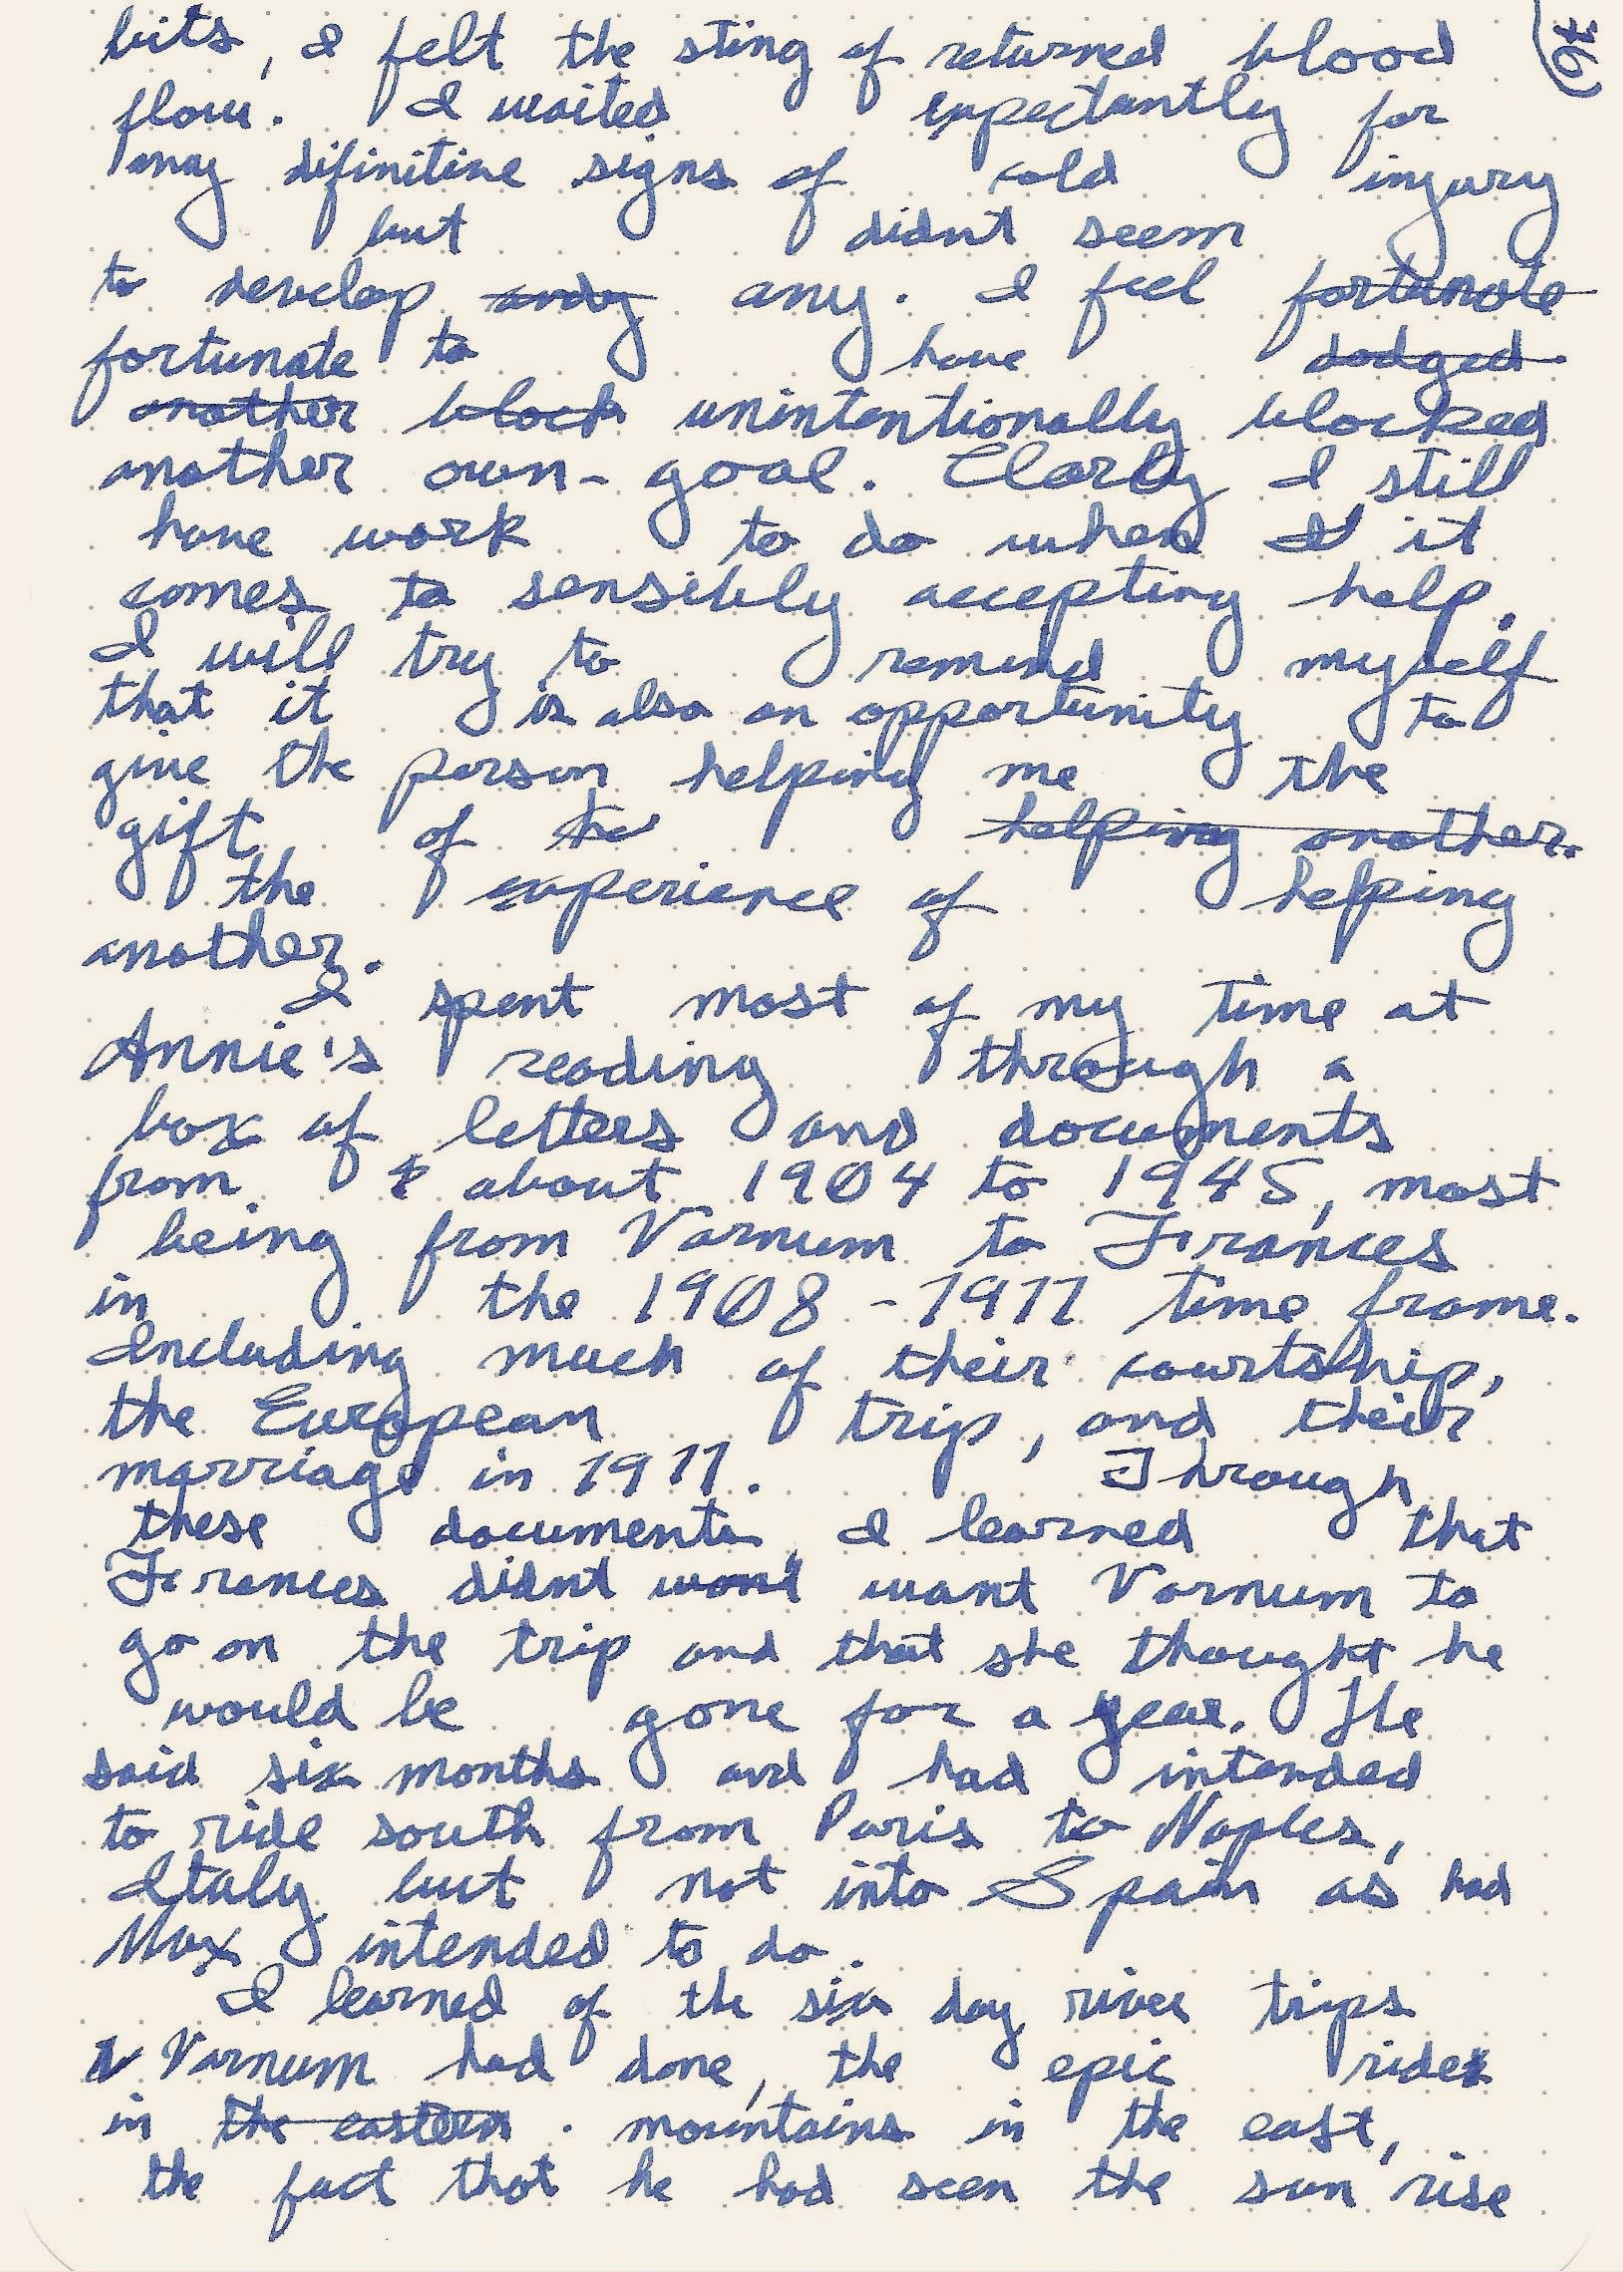 bits, I felt the sting of returned blood
flow. I waited expectantly for
any difinitive signs of cold injury
but didnt seem
to develop andy any. I feel fortunate
fortunate to have dodged
another block unintentionally blocked
another own-goal. Clarly I still
have work to do when I it
comes to sensibly accepting help.
I will try to remind myself
that it is also an opportunity to
give the person helping me the
gift of the helping another.
the experience of helping
another.
I spent most of my time at
Annie's reading through a
box of letters and documents
from about 1904 to 1945, most
being from Varnum to Frances
in the 1908-1911 time frame.
Including much of their courtship,
the European trip, and their
marriage in 1911. Through
these documents, I learned that
Frances didnt want want Varnum to
go on the trip and that she thought he
would be gone for a year. He
said six months and had intended
to ride south from Paris to Naples,
Italy but not into Spain as had
Max intended to do.
I learned of the six day river trips
Varnum had done, the epic rides
in the eastern mountains in the east,
the fact that he had seen the sun rise